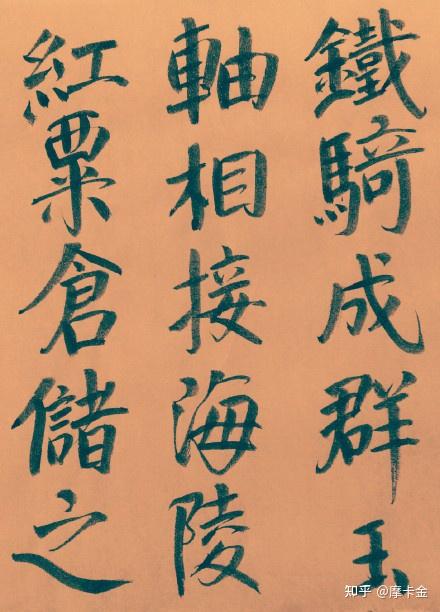 鐵騎成群玉
軸相接海陵
紅粟倉儲之
知乎 @摩卡金